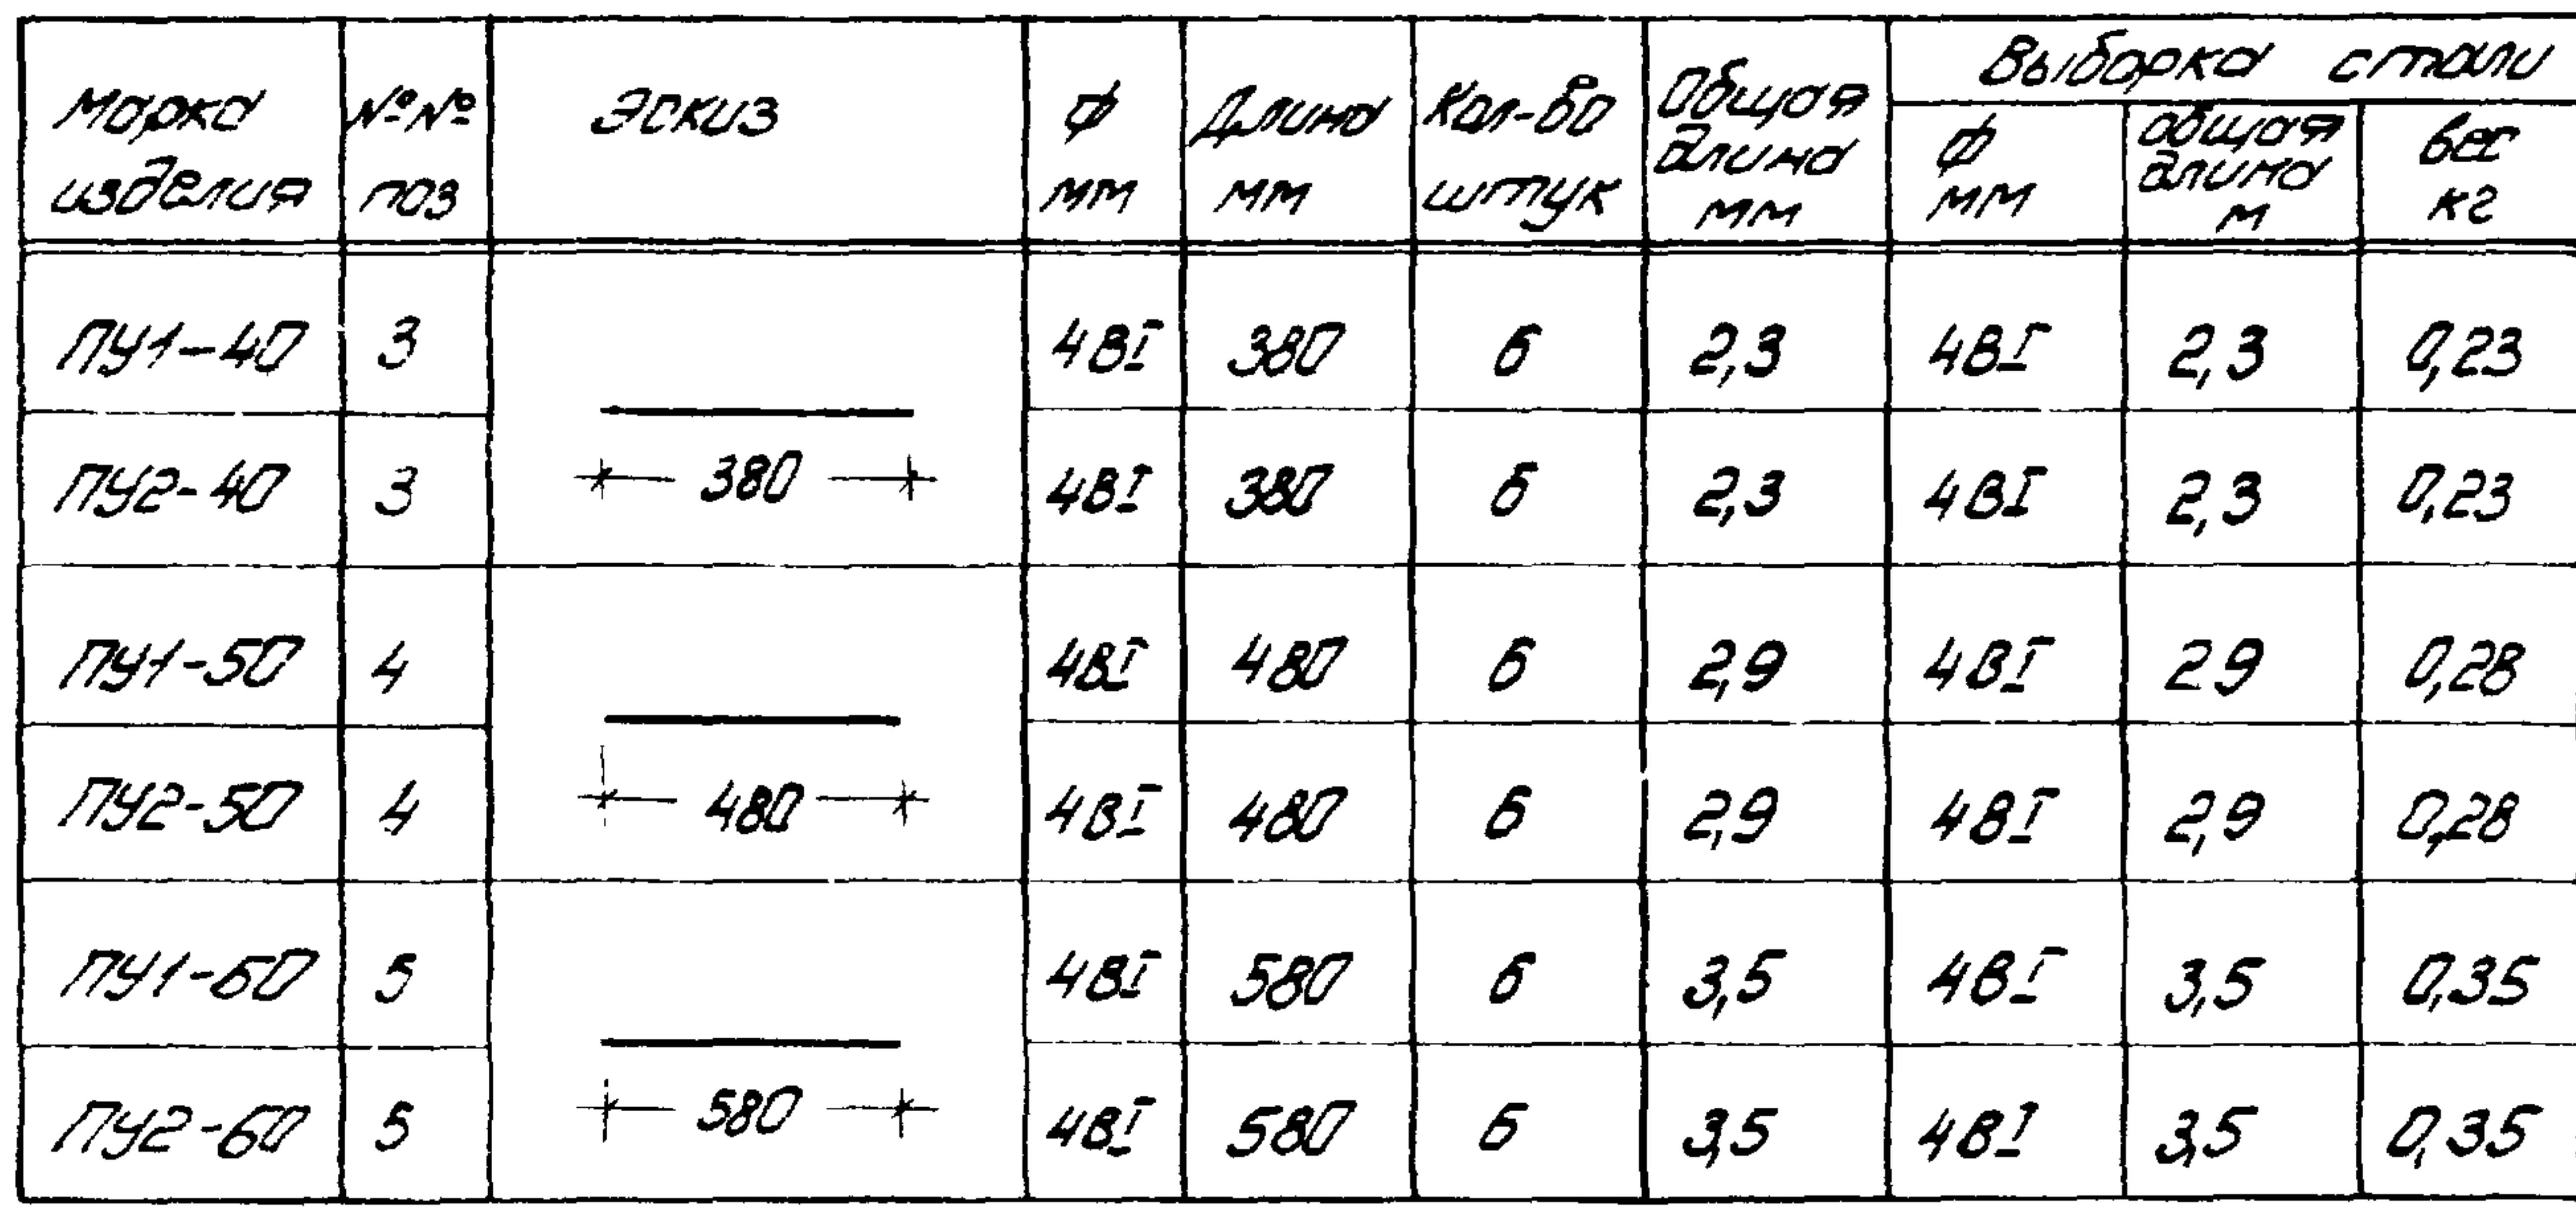 Марка изделия | №№ поз | Эскиз | ф мм | Длина мм | Кол-во штук | Общая длина мм | Выборка стали
ф мм | общая длина м | вес кг
ПУ1-40 | 3 | 4ВI | 380 | 6 | 2,3 | 4ВI | 2,3 | 0,23
380
ПУ2-40 | 3 | 4ВI | 380 | 6 | 2,3 | 4ВI | 2,3 | 0,23
ПУ1-50 | 4 | 4ВI | 480 | 6 | 2,9 | 4ВI | 29 | 0,28
480
ПУ2-50 | 4 | 4ВI | 480 | 6 | 2,9 | 4ВI | 2,9 | 0,28
ПУ1-60 | 5 | 4ВI | 580 | 6 | 3,5 | 4ВI | 3,5 | 0,35
580
ПУ2-60 | 5 | 4ВI | 580 | 6 | 3,5 | 4ВI | 3,5 | 0,35